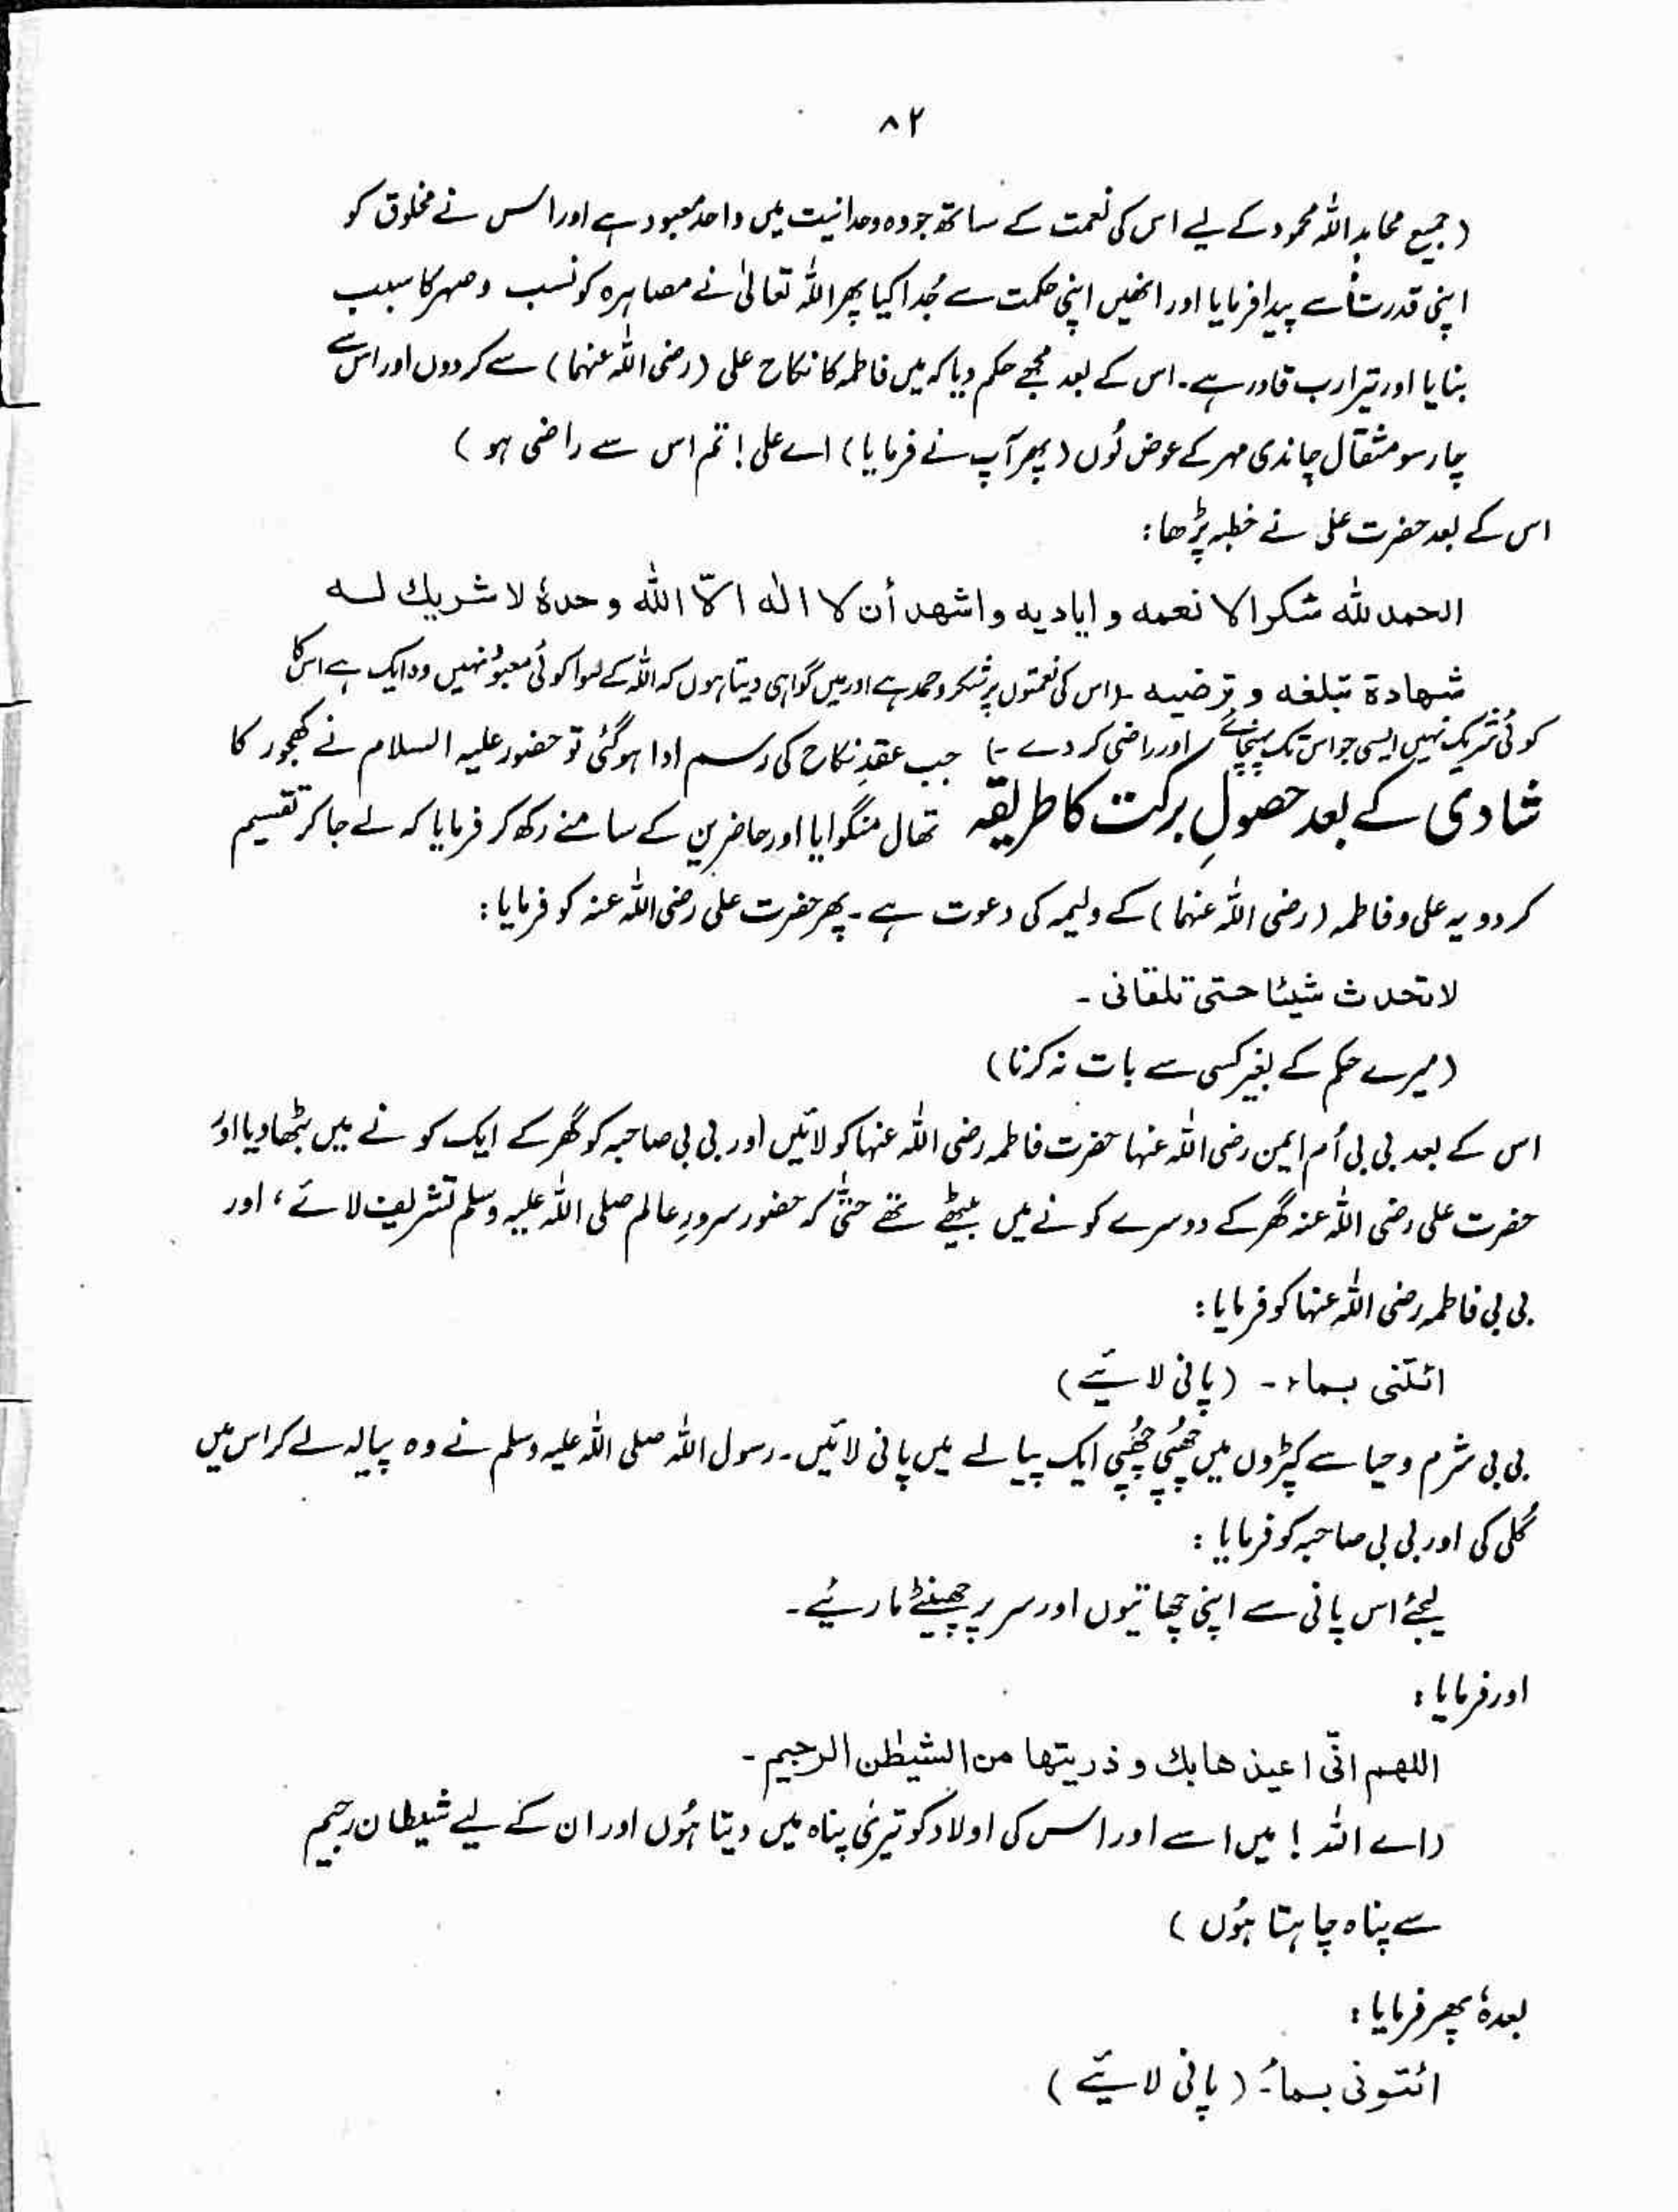 ۸۲
(جمیع محامد اللہ محمود کے لیے اس کی نعمت کے ساتھ جو وہ وحدانیت میں واحد معبود ہے اور اس نے مخلوق کو
اپنی قدرت سے پیدا فرمایا اور انھیں اپنی حکمت سے جُدا کیا پھر اللہ تعالیٰ نے مصاہرہ کو نسب و صہر کا سبب
بنایا اور تیرا رب قادر ہے۔ اس کے بعد مجھے حکم دیا کہ میں فاطمہ کا نکاح علی (رضی اللہ عنہما) سے کر دوں اور اس سے
چار سو مثقال چاندی مہر کے عوض لُوں (پھر آپ نے فرمایا) اے علی! تم اس سے راضی ہو)
اس کے بعد حضرت علی نے خطبہ پڑھا:
الحمد للہ شکرا لا نعمہ و ایادیہ و اشھد أن لا الہ الّا اللہ وحدہٗ لا شریك لہ
شھادۃ تبلغہ و ترضیہ ۔ (اس کی نعمتوں پر شکر و حمد ہے اور میں گواہی دیتا ہوں کہ اللہ کے سوا کوئی معبود نہیں وہ ایک ہے اس کا
کوئی شریک نہیں ایسی جو اس تک پہنچائے اور راضی کر دے ۔) جب عقدِ نکاح کی رسم ادا ہوگئی تو حضور علیہ السلام نے کھجور کا
شادی کے بعد حصولِ برکت کا طریقہ تھال منگوایا اور حاضرین کے سامنے رکھ کر فرمایا کہ لے جا کر تقسیم
کر دو یہ علی و فاطمہ (رضی اللہ عنہما) کے ولیمہ کی دعوت ہے ۔ پھر حضرت علی رضی اللہ عنہ کو فرمایا:
لا تحدث شیئا حتی تلقانی ۔
(میرے حکم کے بغیر کسی سے بات نہ کرنا)
اس کے بعد بی بی اُم ایمن رضی اللہ عنہا حضرت فاطمہ رضی اللہ عنہا کو لائیں اور بی بی صاحبہ کو گھر کے ایک کونے میں بٹھا دیا اور
حضرت علی رضی اللہ عنہ گھر کے دوسرے کونے میں بیٹھے تھے حتّٰی کہ حضور سرورِ عالم صلی اللہ علیہ وسلم تشریف لائے، اور
بی بی فاطمہ رضی اللہ عنہا کو فرمایا:
ائتنی بماء ۔ (پانی لائیے)
بی بی شرم و حیا سے کپڑوں میں چھُپی چھُپی ایک پیالے میں پانی لائیں۔ رسول اللہ صلی اللہ علیہ وسلم نے وہ پیالہ لے کر اس میں
کُلی کی اور بی بی صاحبہ کو فرمایا:
لیجئے اس پانی سے اپنی چھاتیوں اور سر پر چھینٹے مارئیے۔
اور فرمایا:
اللھم انّی اعیذ ھا بك و ذریتھا من الشیطٰن الرجیم ۔
(اے اللہ! میں اسے اور اس کی اولاد کو تیری پناہ میں دیتا ہُوں اور ان کے لیے شیطان رجیم
سے پناہ چاہتا ہُوں)
بعدہٗ پھر فرمایا:
ائتونی بماءٍ (پانی لائیے)